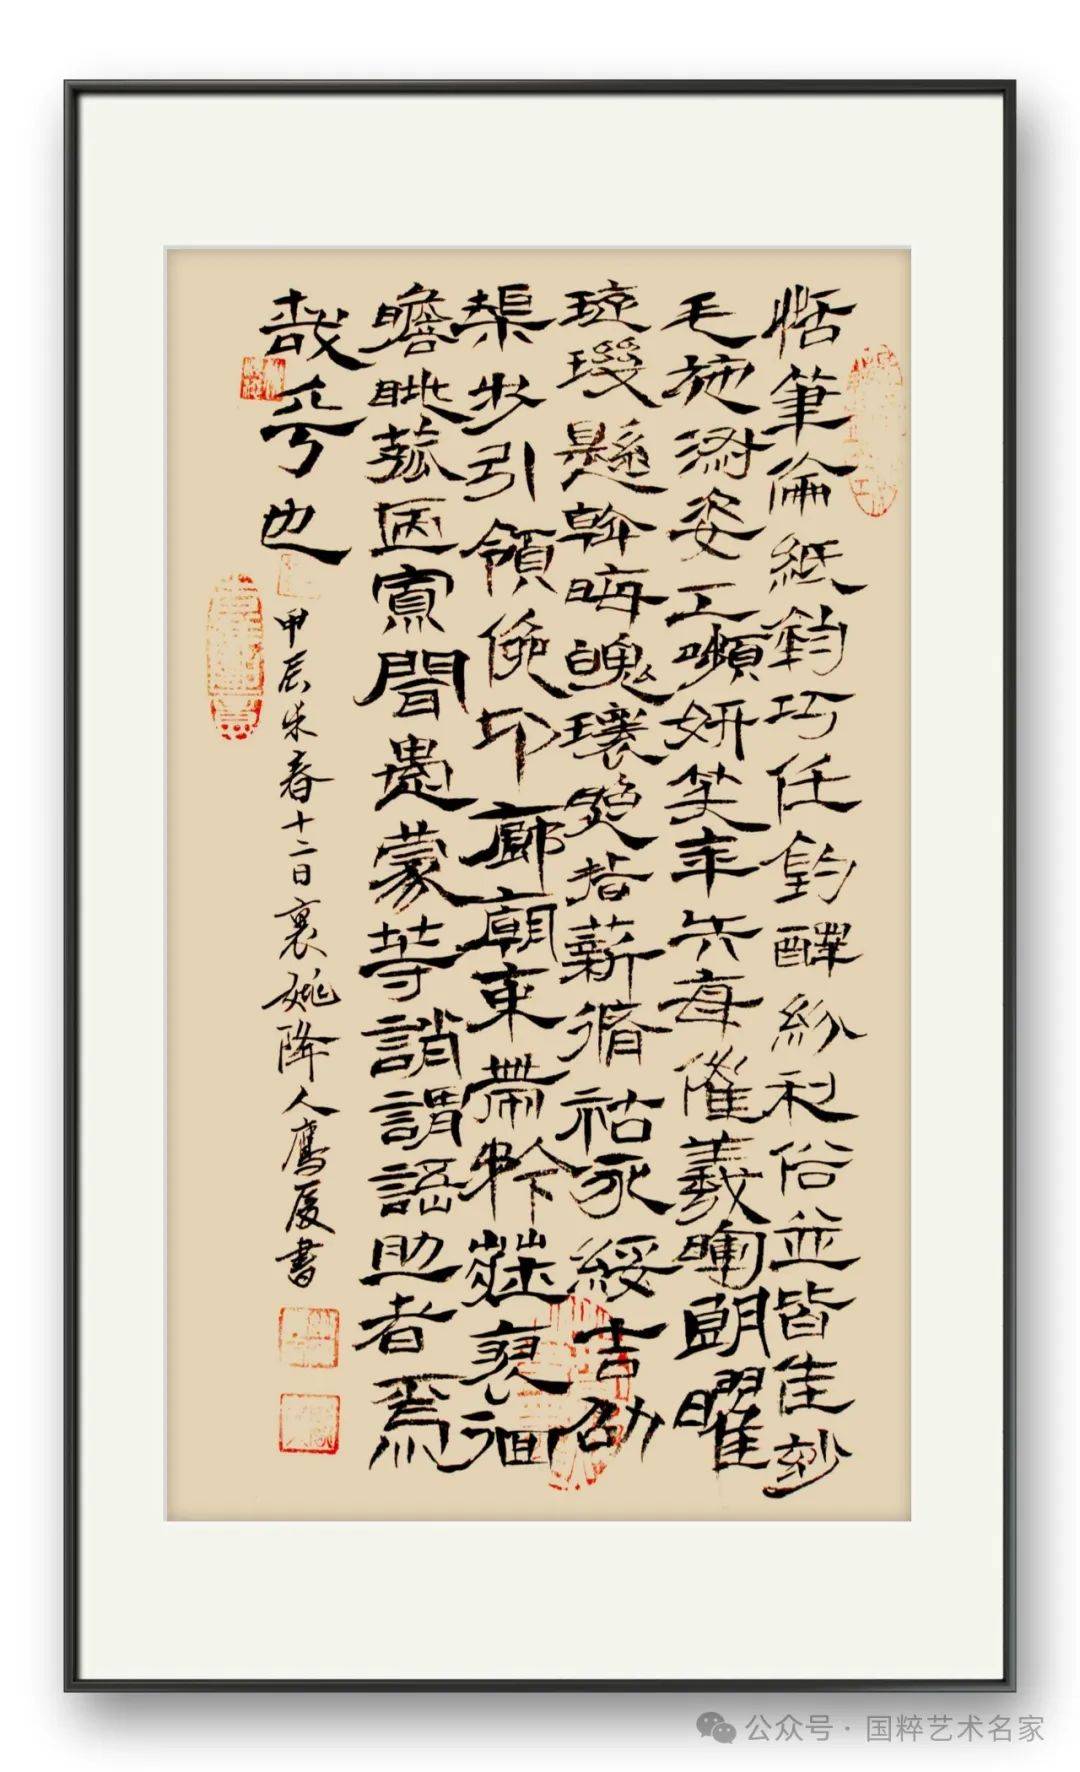 恬筆倫紙鈞巧任釣釋紛利俗並皆佳妙
毛施淑姿工嚬妍笑年矢每催羲暉朗曜
琁璣懸斡晦魄環照指薪脩祜永綏吉劭
榘步引領俛仰廊廟束帶矜莊裵徊
瞻眺孤陋寡聞愚蒙等誚謂語助者焉
哉乎也
甲辰末春十二日裏姚降人鷹厦書
公众号 · 国粹艺术名家